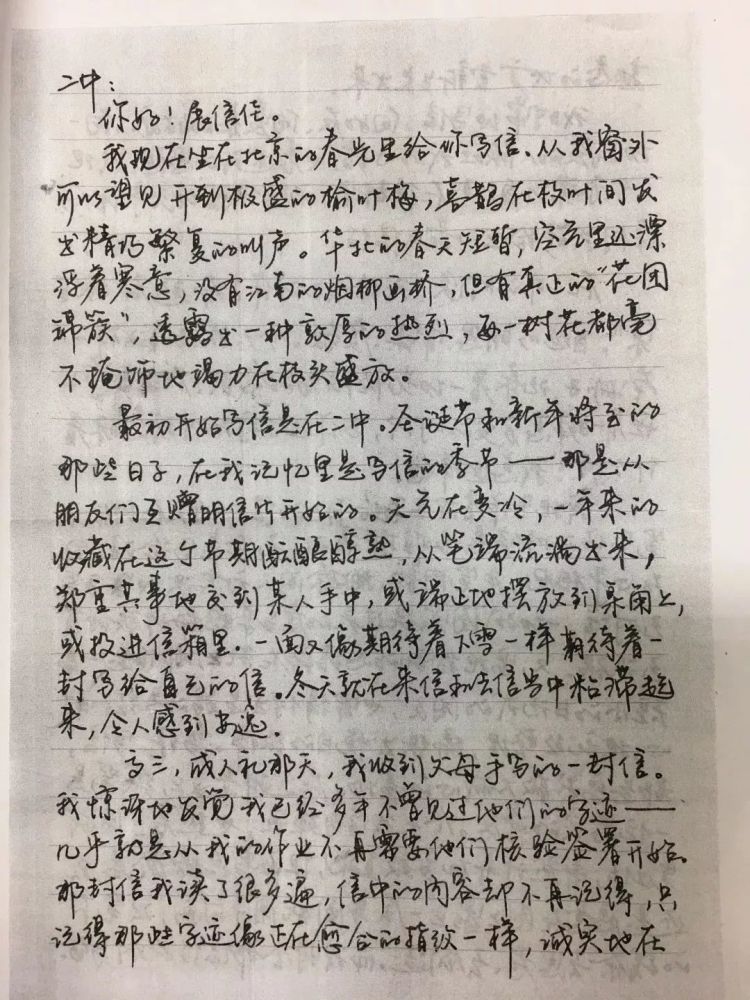 二中：
你好！展信佳。
我现在坐在北京的春光里给你写信。从我窗外
可以望见开到极盛的榆叶梅，喜鹊在枝叶间发
出精巧繁复的叫声。华北的春天短暂，空气里还漂
浮着寒意，没有江南的烟柳画桥，但有真正的“花团
锦簇”，透露出一种敦厚的热烈，每一树花都毫
不掩饰地竭力在枝头盛放。
最初开始写信是在二中。圣诞节和新年将至的
那些日子，在我记忆里是写信的季节——那是从
朋友们互赠明信片开始的。天气在变冷，一年来的
收藏在这个节期酝酿醇熟，从笔端流淌出来，
郑重其事地交到某人手中，或端正地摆放到桌角上，
或投进信箱里。一面又像期待着下雪一样期待着一
封写给自己的信。冬天就在来信和去信当中粘滞起
来，令人感到安逸。
高三，成人礼那天，我收到父母手写的一封信。
我惊讶地发觉我已经多年不曾见过他们的字迹——
几乎就是从我的作业不再需要他们核验签署开始。
那封信我读了很多遍，信中的内容却不再记得，只
记得那些字迹像正在愈合的指纹一样，诚实地在